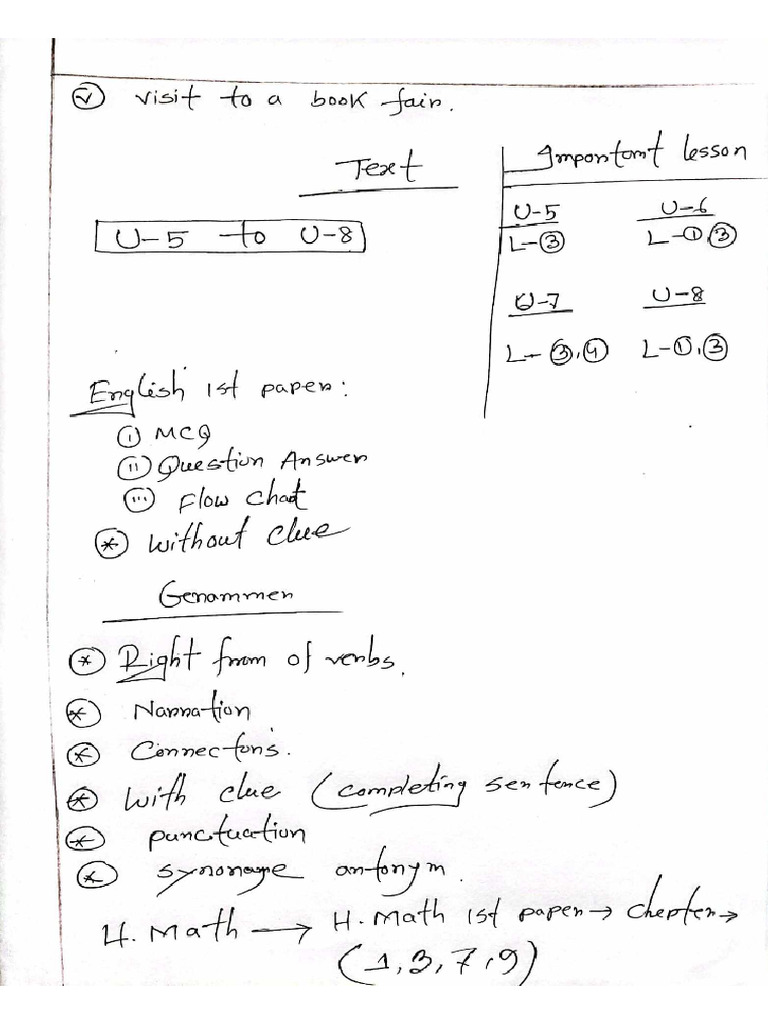 (v) visit to a book fair.
Text
U-5 to U-8
Important lesson
U-5 U-6
L-③ L-①③
U-7 U-8
L-③,④ L-①,③
English 1st paper:
(i) MCQ
(ii) Question Answer
(iii) Flow Chat
* without clue
Grammer
* Right from of verbs.
* Narration
* Connectors.
* with clue (completing sentence)
* punctuation
* synonyme antonym.
H. Math → H. Math 1st paper → chepter →
(1, 3, 7, 9)